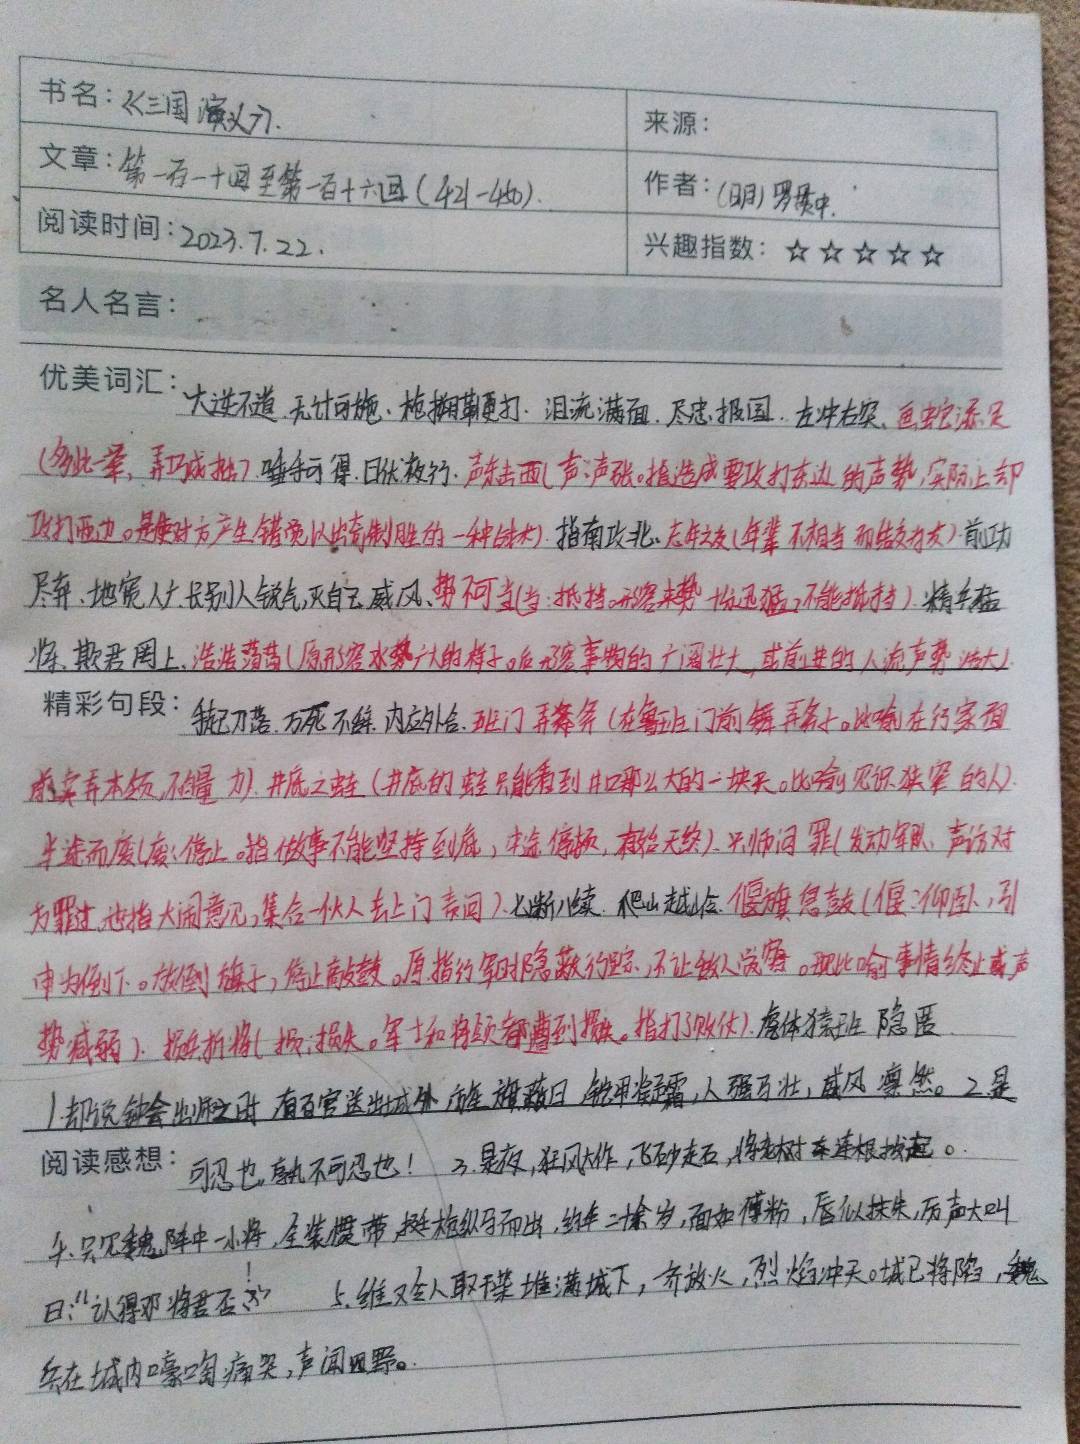 书名：《三国演义》.
来源：
文章：第一百一十回至第一百十六回(421-450).
作者：(明)罗贯中.
阅读时间：2023.7.22.
兴趣指数：☆☆☆☆☆
名人名言：
优美词汇：大逆不道.无计可施、枪搠鞭打.泪流满面.尽忠报国.左冲右突、画蛇添足
(多此一举,弄巧成拙)唾手可得.日伏夜行.声东击西(声:声张。指造成要攻打东边的声势,实际上却
攻打西边。是使对方产生错觉以出奇制胜的一种战术).指南攻北、忘年之友(年辈不相当而结交为友).前功
尽弃、地宽人广.长别人锐气,灭自己威风、势不可当(当:抵挡。形容来势十分迅猛,不能抵挡).精兵猛
将、欺君罔上、浩浩荡荡(原形容水势广大的样子。后形容事物的广阔壮大,或前进的人流声势浩大).
精彩句段：手起刀落.万死不辞.内应外合.班门弄斧(在鲁班门前舞弄斧子。比喻在行家面
前卖弄本领,不自量力).井底之蛙(井底的蛙只能看到井口那么大的一块天。比喻见识狭窄的人).
半途而废(废:停止。指做事不能坚持到底,中途停顿,有始无终).兴师问罪(发动军队,声讨对
方罪过.也指大闹意见,集合一伙人去上门责问).七断八续.爬山越岭.偃旗息鼓(偃:仰卧,引
申为倒下。放倒旗子,停止敲鼓。原指行军时隐蔽行踪,不让敌人觉察。现比喻事情终止或声
势减弱).损兵折将(损:损失。军士和将领都遭到损失。指打了败仗).虎体猿班 隐匿
1.却说钟会出师之时 有百官送出城外 旌旗蔽日 铠甲凝霜,人强马壮,威风凛然。2.是
阅读感想：可忍也,孰不可忍也！ 3.是夜,狂风大作,飞砂走石,将老树连根拔起。
4.只见魏阵中一小将,全装惯带,挺枪纵马而出,约年二十余岁,面如傅粉,唇似抹朱,厉声大叫
曰:“认得邓将军否！” 5.维又令人取干柴堆满城下,一齐放火,烈焰冲天。城已将陷,魏
兵在城内嚎啕痛哭,声闻四野。